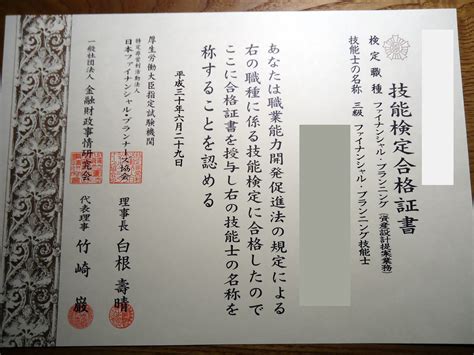 技能検定合格証書
検定職種 ファイナンシャル・プランニング(資産設計提案業務)
技能士の名称 三級 ファイナンシャル・プランニング技能士
あなたは職業能力開発促進法の規定による
右の職種に係る技能検定に合格したので
ここに合格証書を授与し右の技能士の名称を
称することを認める
平成三十年六月二十九日
厚生労働大臣指定試験機関
特定非営利活動法人
日本ファイナンシャル・プランナーズ協会
理事長 白根壽晴
一般社団法人 金融財政事情研究会
代表理事 竹崎巌